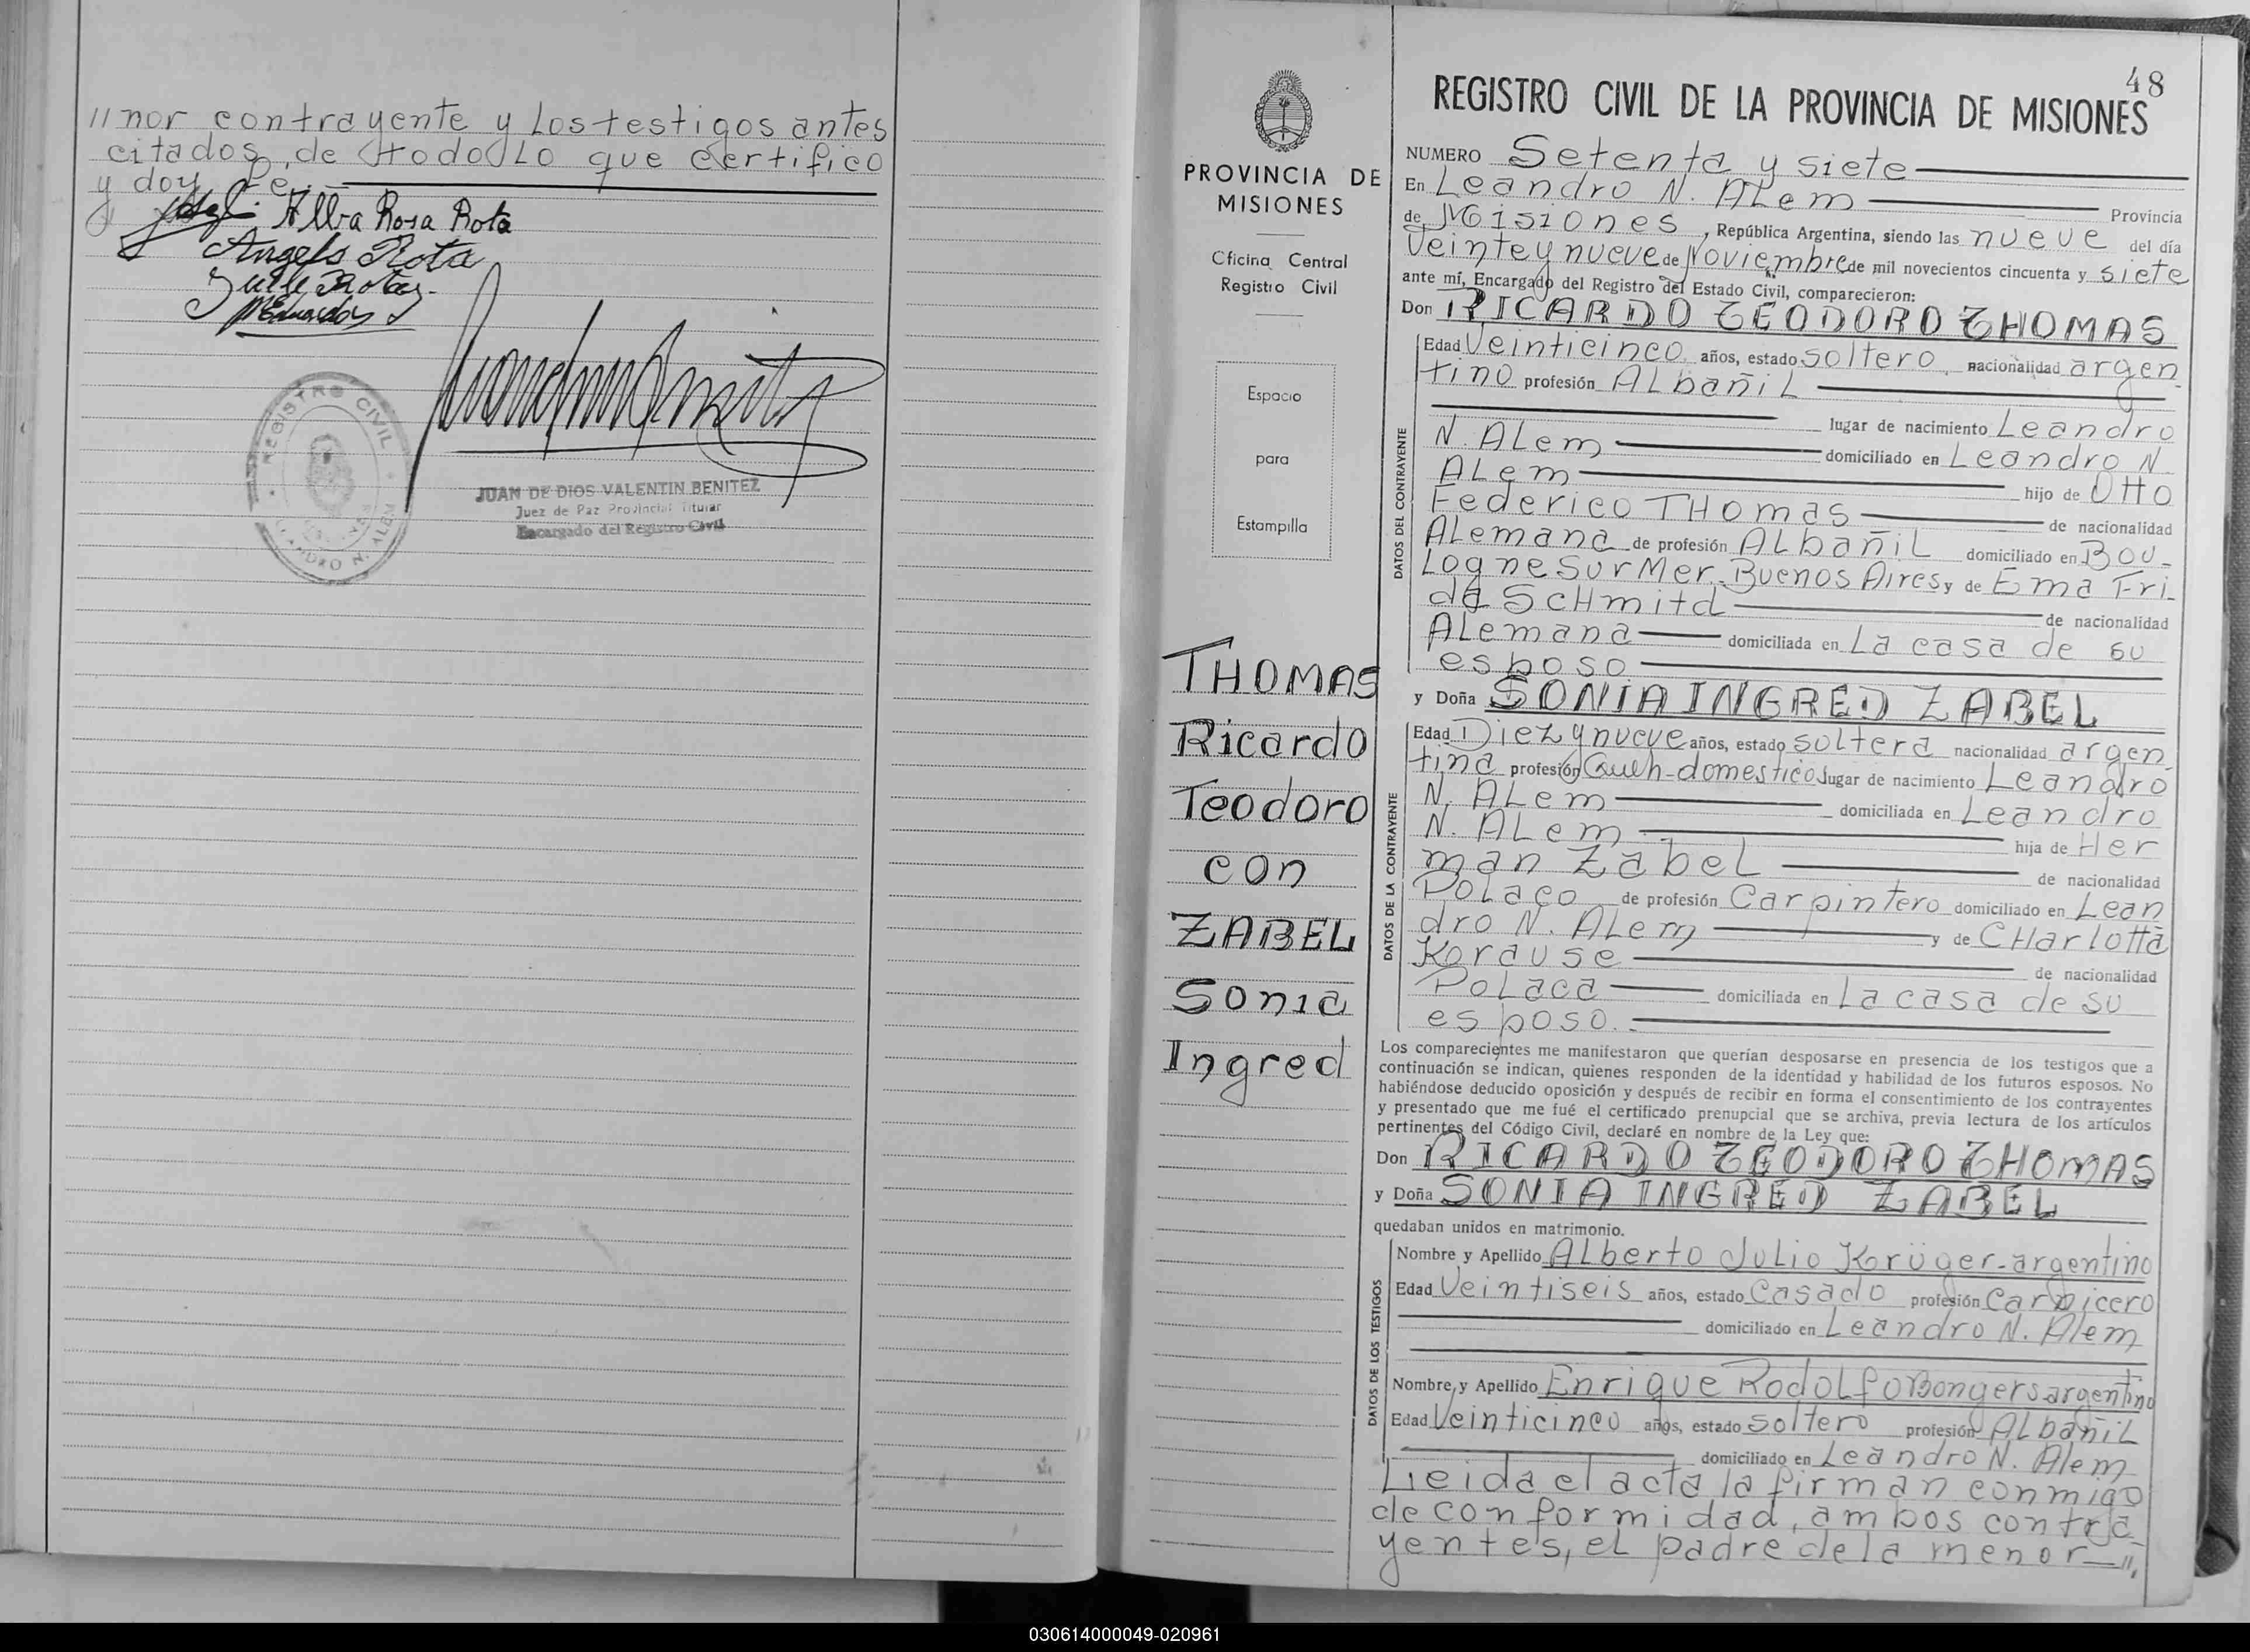 "nor contrayente y los testigos antes
citados, de todo lo que certifico
y doy fe.
Alba Rosa Rota
Angelo Rota
REGISTRO CIVIL
LEANDRO N. ALEM
JUAN DE DIOS VALENTIN BENITEZ
Juez de Paz Provincial Titular
Encargado del Registro Civil
PROVINCIA DE
MISIONES
Oficina Central
Registro Civil
Espacio
para
Estampilla
THOMAS
Ricardo
Teodoro
con
ZABEL
Sonia
Ingred
48
REGISTRO CIVIL DE LA PROVINCIA DE MISIONES
NUMERO Setenta y siete
En Leandro N. Alem Provincia
de Misiones, República Argentina, siendo las nueve del día
Veinte y nueve de Noviembre de mil novecientos cincuenta y siete
ante mí, Encargado del Registro del Estado Civil, comparecieron:
Don RICARDO TEODORO THOMAS
DATOS DEL CONTRAYENTE
Edad Veinticinco años, estado soltero, nacionalidad argen
tino profesión Albañil
lugar de nacimiento Leandro
N. Alem domiciliado en Leandro N.
Alem hijo de Otto
Federico Thomas de nacionalidad
Alemana de profesión Albañil domiciliado en Bou-
logne Sur Mer. Buenos Aires y de Ema Fri-
da Schmitd de nacionalidad
Alemana domiciliada en La casa de su
esposo
y Doña SONIA INGRED ZABEL
DATOS DE LA CONTRAYENTE
Edad Diez y nueve años, estado soltera nacionalidad argen
tina profesión Queh-domestico lugar de nacimiento Leandro
N. Alem domiciliada en Leandro
N. Alem hija de Her
man Zabel de nacionalidad
Polaco de profesión Carpintero domiciliado en Lean
dro N. Alem y de Charlotta
Korause de nacionalidad
Polaca domiciliada en la casa de su
esposo.
Los comparecientes me manifestaron que querían desposarse en presencia de los testigos que a
continuación se indican, quienes responden de la identidad y habilidad de los futuros esposos. No
habiéndose deducido oposición y después de recibir en forma el consentimiento de los contrayentes
y presentado que me fué el certificado prenupcial que se archiva, previa lectura de los artículos
pertinentes del Código Civil, declaré en nombre de la Ley que:
Don RICARDO TEODORO THOMAS
y Doña SONIA INGRED ZABEL
quedaban unidos en matrimonio.
DATOS DE LOS TESTIGOS
Nombre y Apellido Alberto Julio Korüger-argentino
Edad Veintiseis años, estado Casado profesión Carnicero
domiciliado en Leandro N. Alem
Nombre y Apellido Enrique Rodolfo Bongers argentino
Edad Veinticinco años, estado soltero profesión Albañil
domiciliado en Leandro N. Alem
Lieida el acta la firman conmigo
de conformidad, ambos contra-
yentes, el padre de la menor"
030614000049-020961